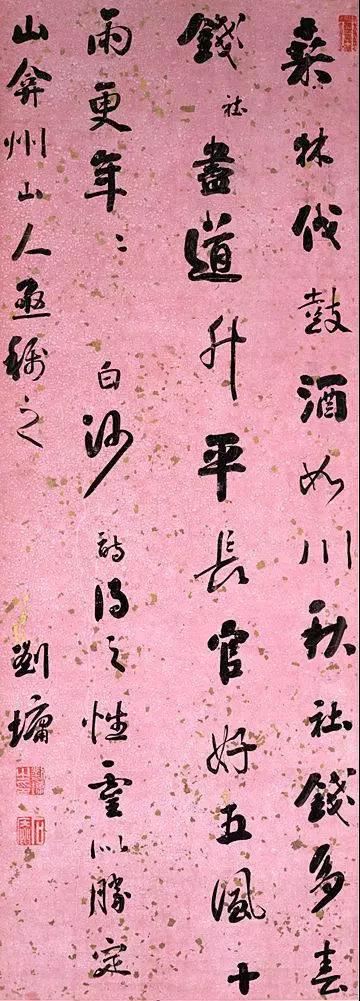 桑林伐鼓酒如川秋社錢多春
錢社盡道升平長官好五風十
雨更年〻 白沙詩得之性靈以勝定
山弇州山人亟稱之 劉墉